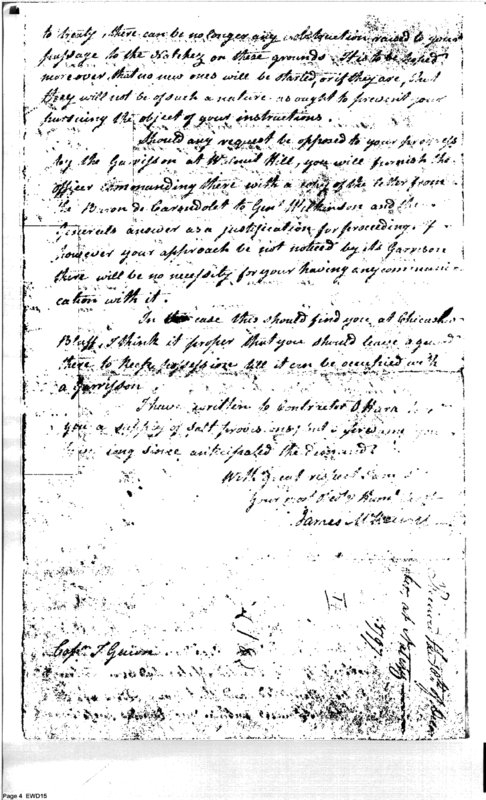 to treaty, there can be no longer any obstruction raised to your
passage to the Natchez on these grounds. It is to be hoped
moreover, that no new ones will be started, or if they are, that
they will not be of such a nature as ought to prevent your
pursuing the object of your instructions.
Should any request be opposed to your progress
by the Garrisson at Walnut Hill, you will furnish the
officer commanding there with a copy of the letter from
the Baron de Carondolet to Genl Wilkinson and the
Generals answer as a justification for proceeding. If
however your approach be not noticed by its Garrison
there will be no necessity for your having any communi-
cation with it.
In case this should find you at Chicasaw
Bluff, I think it proper that you should leave a guard
there to keep possession till it can be occupied with
a Garrisson
I have written to Contractor O Hara
you a supply of salt provisions, but
long since anticipated the demand
With great respect I am
Your most obedt & Humb
James McHenry
Capn I. Guion
1797
Page 4 EWD15